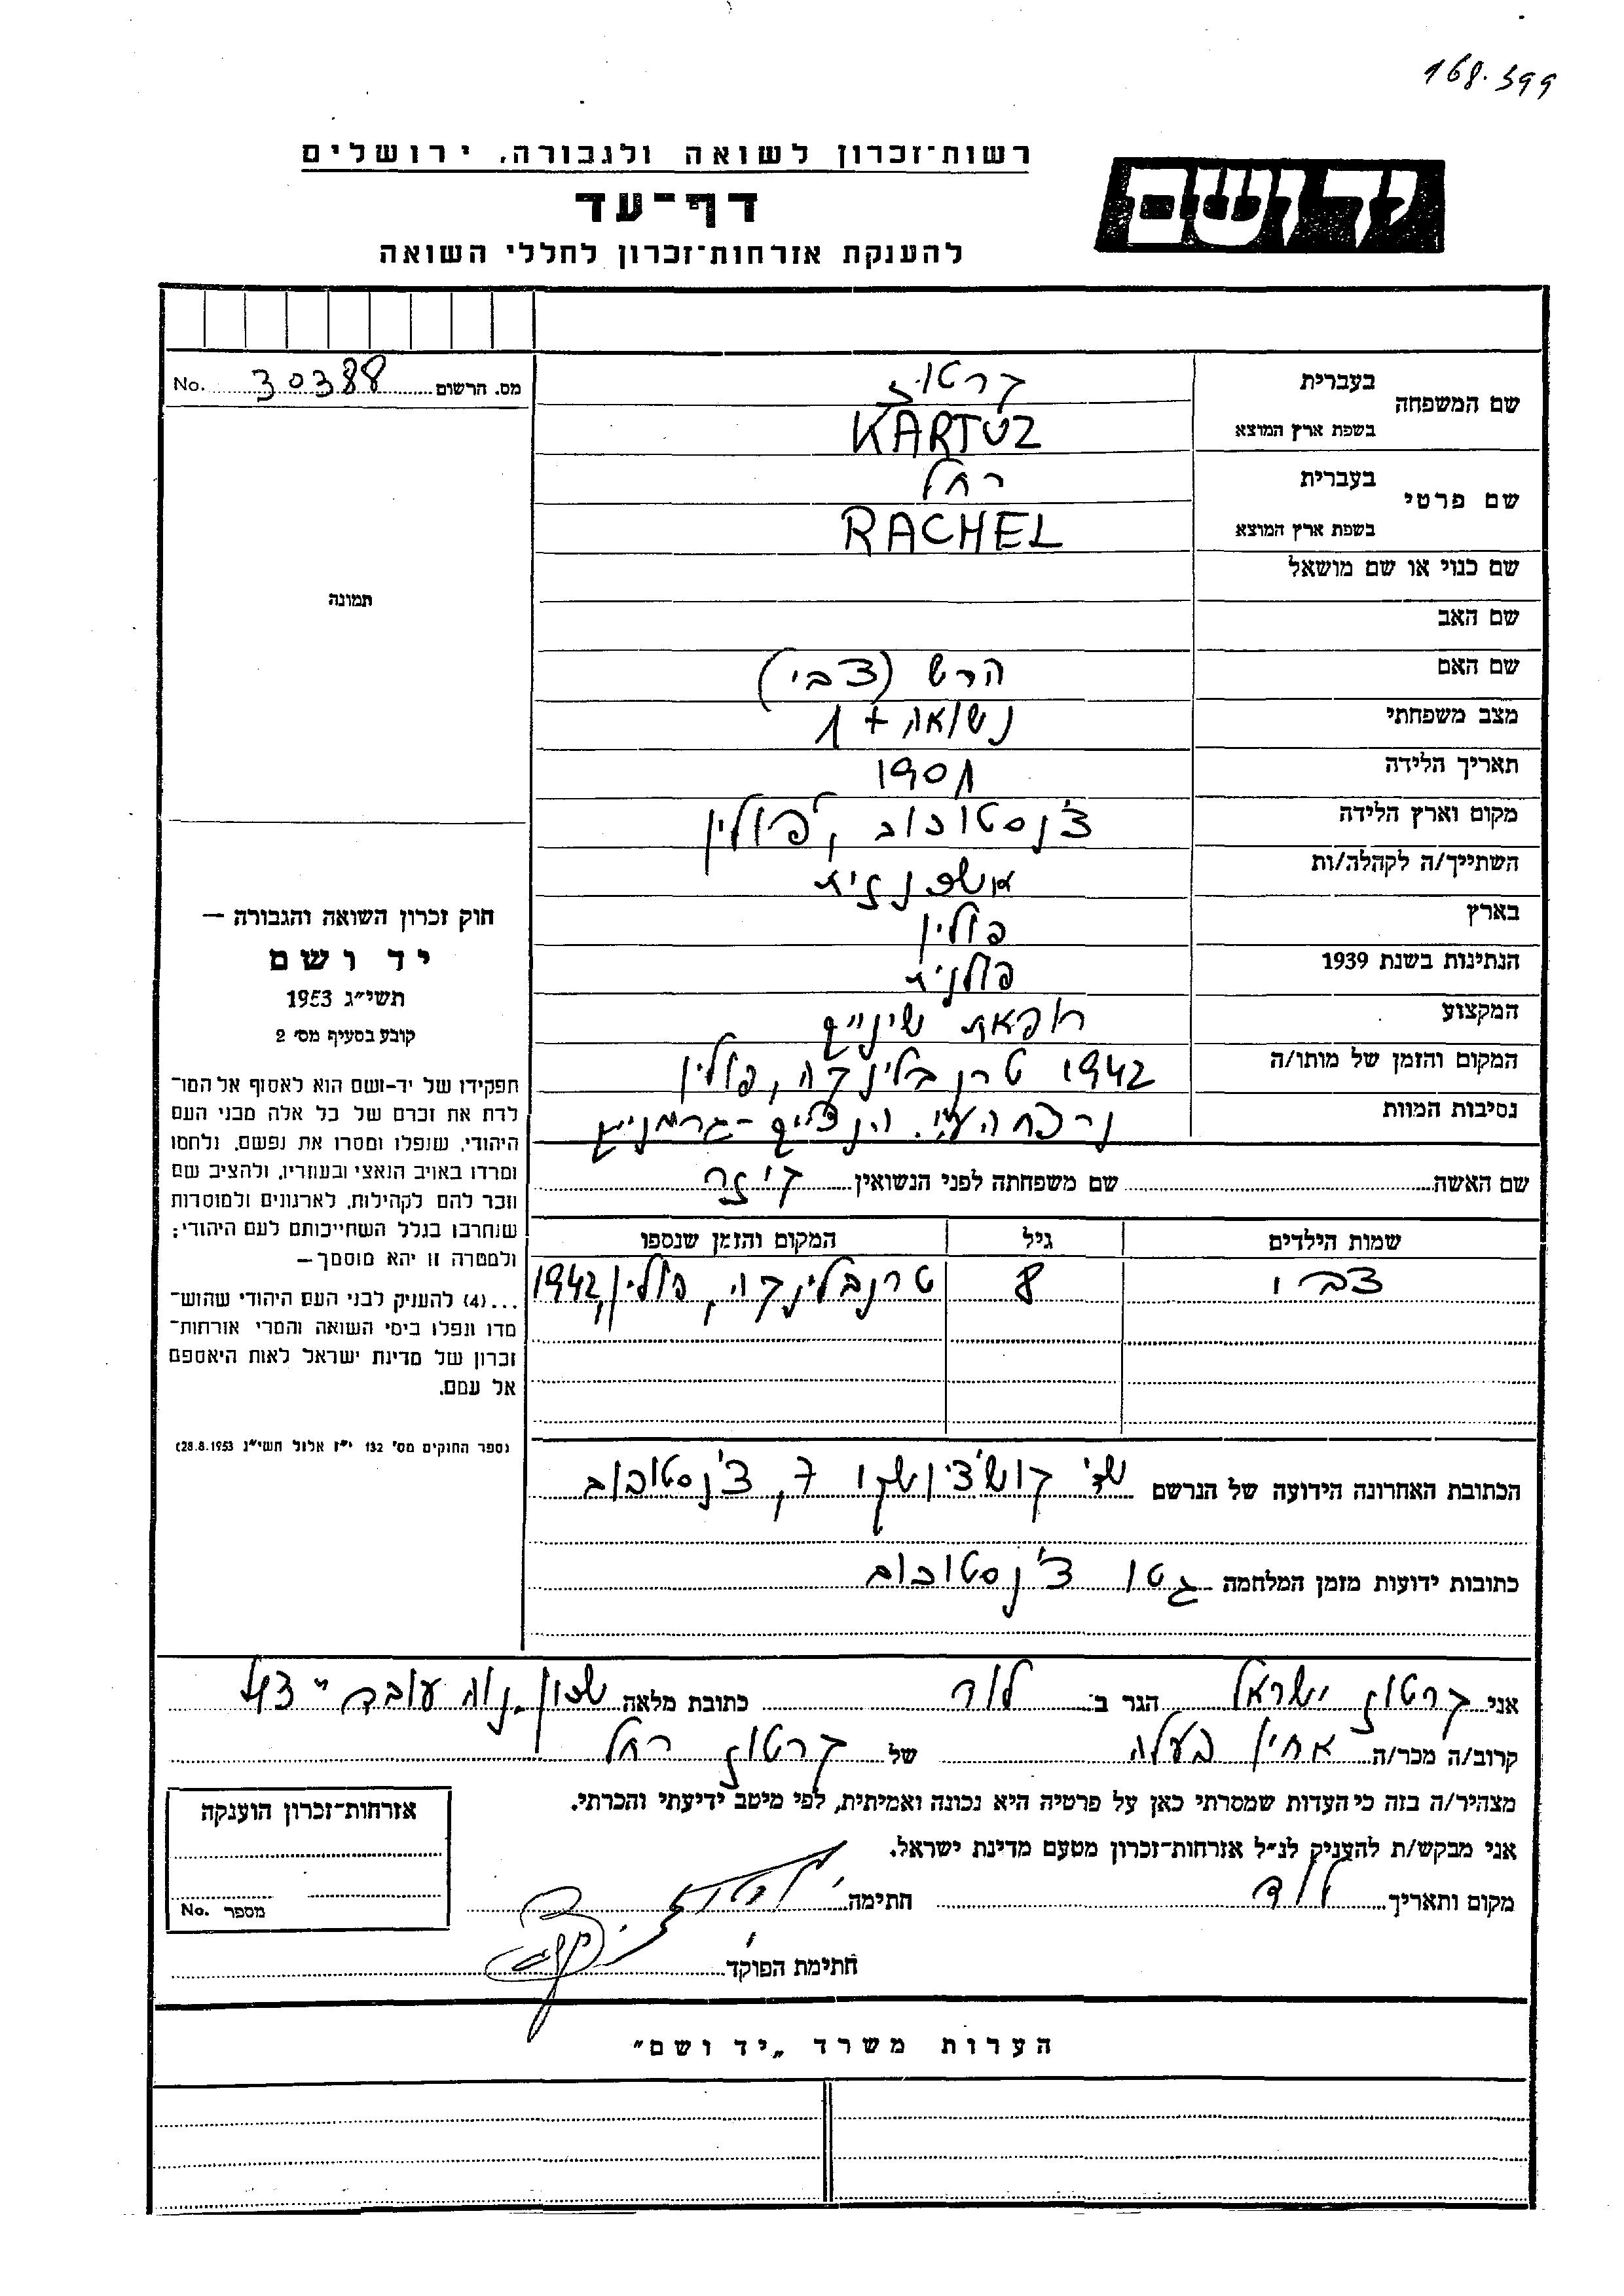 168.399
רשות־זכרון לשואה ולגבורה, ירושלים
יד ושם
דף־עד
להענקת אזרחות־זכרון לחללי השואה
מס. הרשום 30388 No.
שם המשפחה בעברית קרטוז
בשפת ארץ המוצא KARTUZ
שם פרטי בעברית רחל
בשפת ארץ המוצא RACHEL
שם כנוי או שם מושאל
שם האב
שם האם הרש (צבי)
מצב משפחתי נשואה + 1
תאריך הלידה 1901
מקום וארץ הלידה צ'נסטוכוב, פולין
השתייך/ה לקהלה/ות אשכנזית
בארץ פולין
הנתינות בשנת 1939 פולנית
המקצוע רופאת שיניים
המקום והזמן של מותו/ה 1942 טרנבלינקה, פולין
נסיבות המוות נרצחה ע"י הנאצים-גרמנים
שם האשה שם משפחתה לפני הנשואין
שמות הילדים גיל המקום והזמן שנספו
צבי 8 טרנבלינקה, פולין, 1942
הכתובת האחרונה הידועה של הנרשם שד' קושצ'ושקו 7, צ'נסטוכוב
כתובות ידועות מזמן המלחמה גטו צ'נסטוכוב
תמונה
חוק זכרון השואה והגבורה —
יד ושם
תשי״ג 1953
קובע בסעיף מס׳ 2
תפקידו של יד־ושם הוא לאסוף אל המו־
לדת את זכרם של כל אלה מבני העם
היהודי, שנפלו ומסרו את נפשם, נלחמו
ומרדו באויב הנאצי ובעוזריו, ולהציב שם
וזכר להם לקהילות, לארגונים ולמוסדות
שנחרבו בגלל השתייכותם לעם היהודי;
ולמטרה זו יהא מוסמך —
...(4) להעניק לבני העם היהודי שהוש־
מדו ונפלו בימי השואה והמרי אזרחות־
זכרון של מדינת ישראל לאות היאספם
אל עמם.
(ספר החוקים מס׳ 132 י״ז אלול תשי״ג 28.8.1953)
אני קרטוז ישראל הגר ב: לוד כתובת מלאה שכון נוה עובד 43
קרוב/ה מכר/ה אחין בעלה של קרטוז רחל
מצהיר/ה בזה כי העדות שמסרתי כאן על פרטיה היא נכונה ואמיתית, לפי מיטב ידיעתי והכרתי.
אני מבקש/ת להעניק לנ״ל אזרחות־זכרון מטעם מדינת ישראל.
מקום ותאריך לוד חתימה
חתימת הפוקד
אזרחות־זכרון הוענקה
מספר No.
הערות משרד „יד ושם״